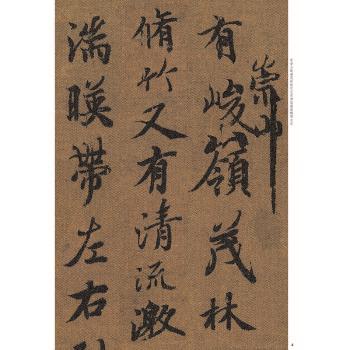 崇山
有峻嶺茂林
脩竹又有清流激
湍暎帶左右